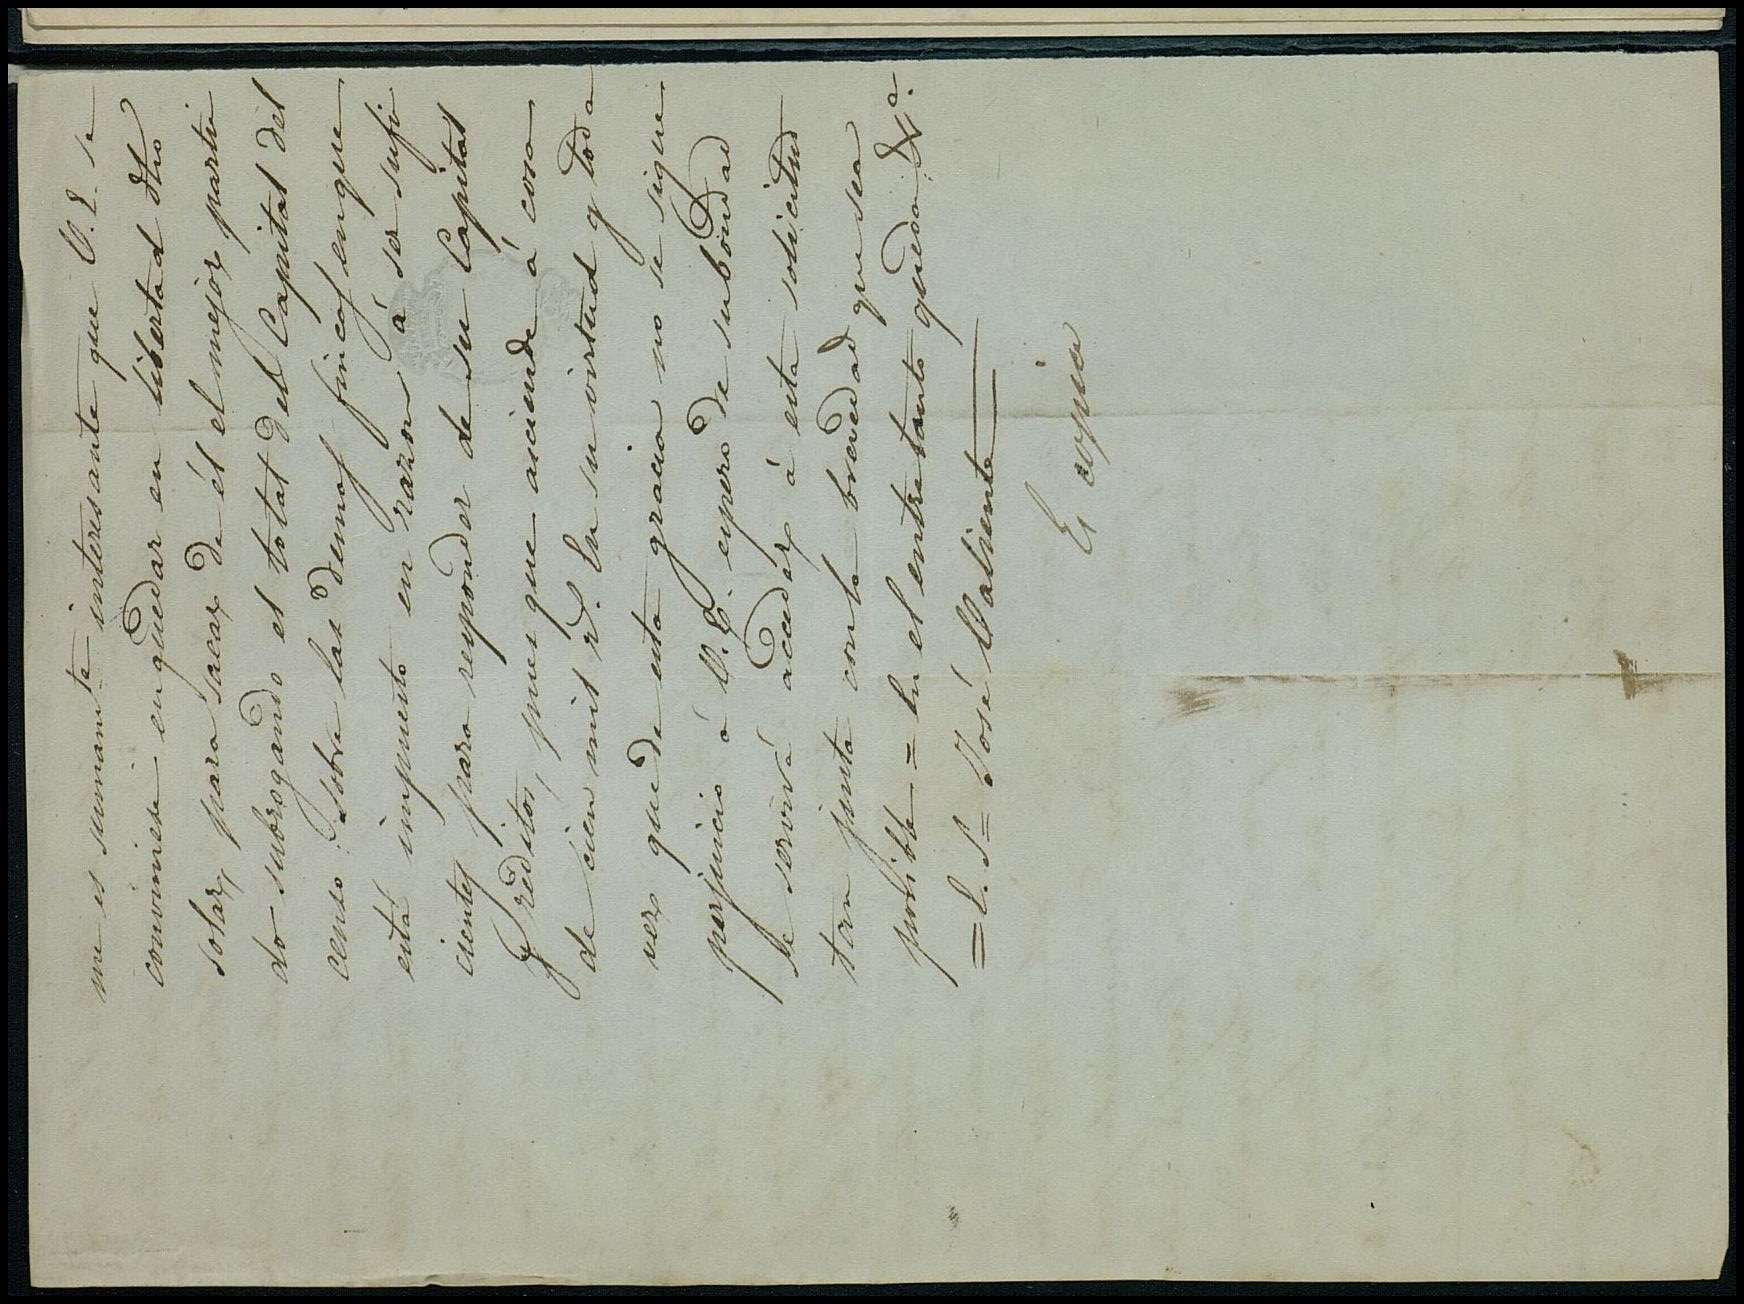 me es sumamte interesante que V.E. se
conviniese en quedar en libertad dho
solar, para sacar de él el mejor parti
do subrogando el total del Capital del
censo sobre las demas fincas en que
está impuesto en razon á ser sufi
cientes para responder de su Capital
y reditos, pues que asciende á cosa
de cien mil rs. En su virtud y toda
vez que de esta gracia no se sigue
perjuicio á V.E. espero de su bondad
se servirá acceder á esta solicitud
tan justa con la brevedad que sea
posible = En el entretanto quedo &a.
= E. S. = José Valiente
Es copia